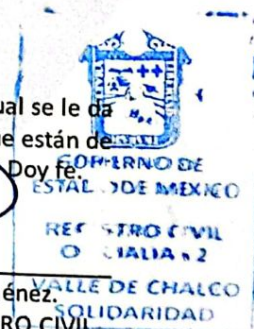 ual se le da
ue están de
Doy fe.
GOBIERNO DE
ESTADO DE MEXICO
REGISTRO CIVIL
OFICIALIA 2
VALLE DE CHALCO
SOLIDARIDAD
énez.
RO CIVIL